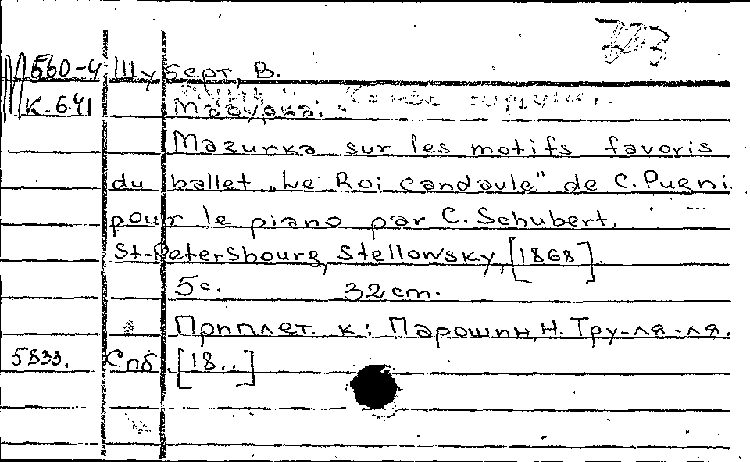 323
Ш560-4 Шуберт, В.
К-641 Мазурка.
Mazurka sur les motifs favoris
du ballet „Le Roi candaule" de C. Pugni
pour le piano par C. Schubert.
St-Petersbourg, Stellowsky, [1868]
5 с. 32 cm.
Приплет. к: Парошин, Н. Тру-ля-ля.
5833. Спб. [18..]